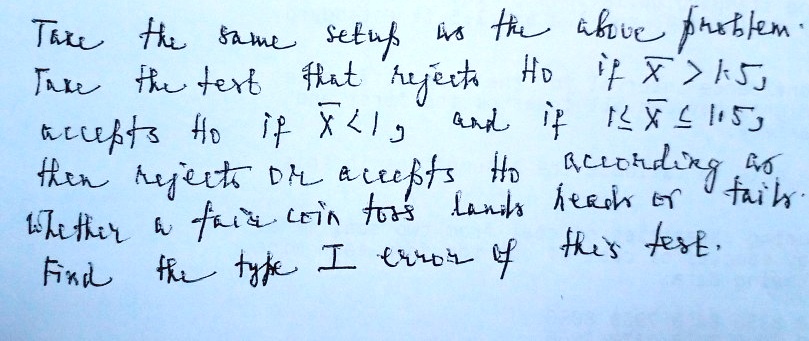 Take the same setup as the above problem.
Take the test that rejects H0 if X̅ > 1.5,
accepts H0 if X̅ < 1, and if 1 ≤ X̅ ≤ 1.5,
then rejects or accepts H0 according as
whether a fair coin toss lands heads or tails.
Find the type I error of this test.